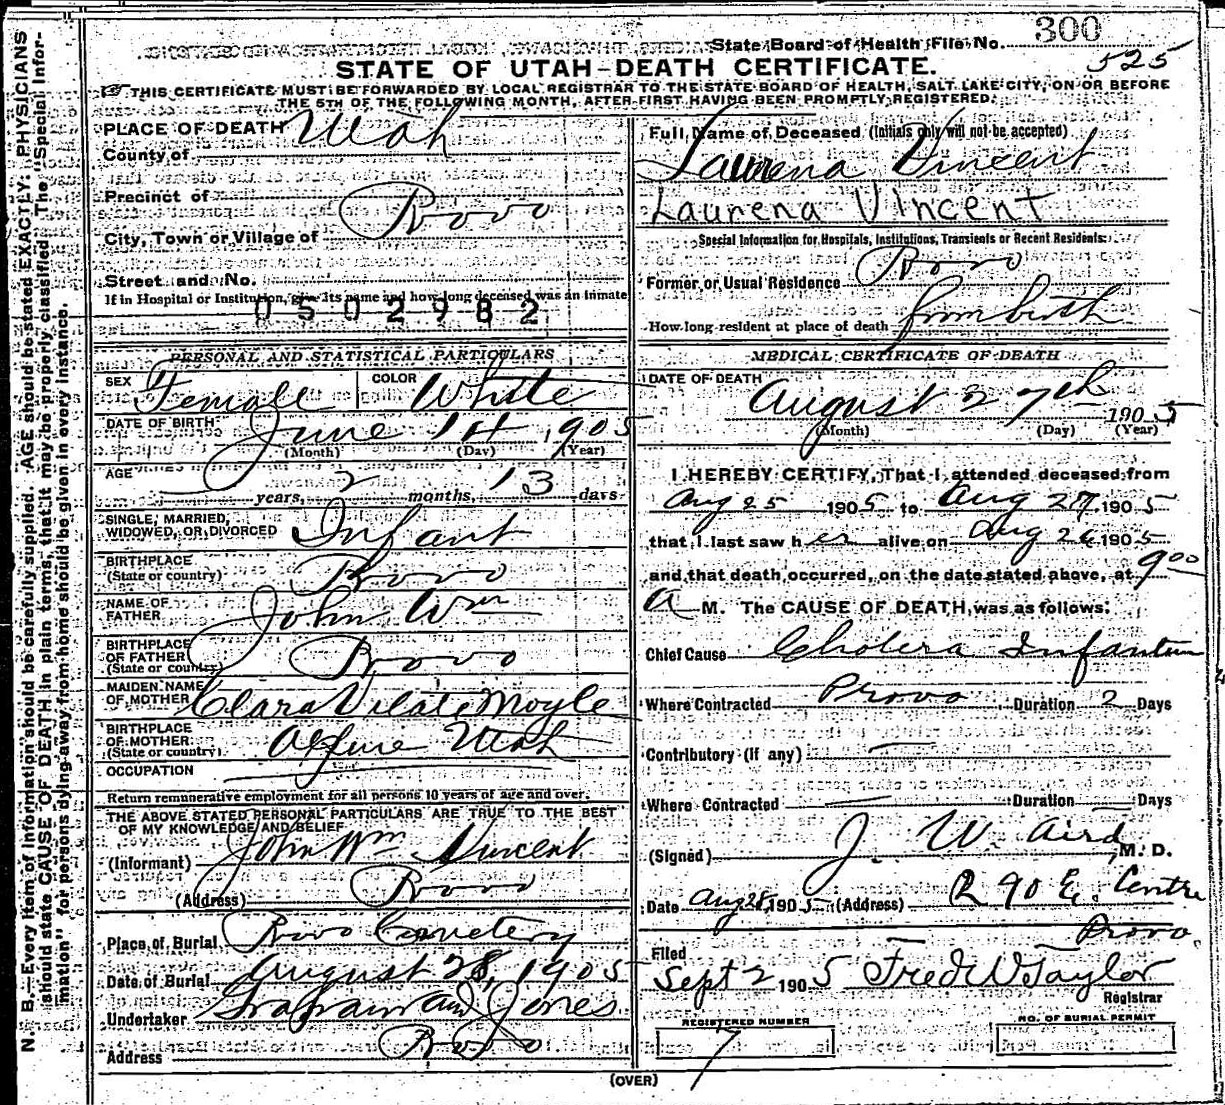 State Board of Health File No. 300
525
STATE OF UTAH—DEATH CERTIFICATE.
THIS CERTIFICATE MUST BE FORWARDED BY LOCAL REGISTRAR TO THE STATE BOARD OF HEALTH, SALT LAKE CITY, ON OR BEFORE
THE 5TH OF THE FOLLOWING MONTH, AFTER FIRST HAVING BEEN PROMPTLY REGISTERED.
N. B.—Every item of information should be carefully supplied. AGE should be stated EXACTLY; PHYSICIANS
should state CAUSE OF DEATH in plain terms, that it may be properly classified. The "Special Infor-
mation" for persons dying away from home should be given in every instance.
PLACE OF DEATH
County of Utah
Precinct of
City, Town or Village of Provo
Street and No.
If in Hospital or Institution, give its name and how long deceased was an inmate
0502982
PERSONAL AND STATISTICAL PARTICULARS
SEX Female COLOR White
DATE OF BIRTH June 14, 1905
(Month) (Day) (Year)
AGE
years, 2 months, 13 days
SINGLE, MARRIED,
WIDOWED, OR DIVORCED Infant
BIRTHPLACE
(State or country) Provo
NAME OF
FATHER John Wm
BIRTHPLACE
OF FATHER
(State or country) Provo
MAIDEN NAME
OF MOTHER Clara Vilate Moyle
BIRTHPLACE
OF MOTHER
(State or country) Alpine Utah
OCCUPATION
Return remunerative employment for all persons 10 years of age and over.
THE ABOVE STATED PERSONAL PARTICULARS ARE TRUE TO THE BEST
OF MY KNOWLEDGE AND BELIEF
(Informant) John Wm Vincent
(Address) Provo
Place of Burial Provo Cemetery
Date of Burial August 28, 1905
Undertaker Graham and Jones
Address Provo
Full Name of Deceased (Initials only will not be accepted)
Laurena Vincent
Laurena Vincent
Special Information for Hospitals, Institutions, Transients or Recent Residents:
Former or Usual Residence Provo
How long resident at place of death from birth
MEDICAL CERTIFICATE OF DEATH
DATE OF DEATH
August 27th 1905
(Month) (Day) (Year)
I HEREBY CERTIFY, That I attended deceased from
Aug 25 1905 to Aug 27, 1905
that I last saw her alive on Aug 26 1905
and that death occurred, on the date stated above, at 9 00
A M. The CAUSE OF DEATH, was as follows:
Chief Cause Cholera Infantum
Where Contracted Provo Duration 2 Days
Contributory (if any) —
Where Contracted — Duration — Days
(Signed) J. W. Aird, M. D.
Date Aug 28, 1905 (Address) R 90 E. Centre
Provo.
Filed
Sept 2 1905 Fred W Taylor
Registrar
REGISTERED NUMBER
7
NO. OF BURIAL PERMIT
(OVER)